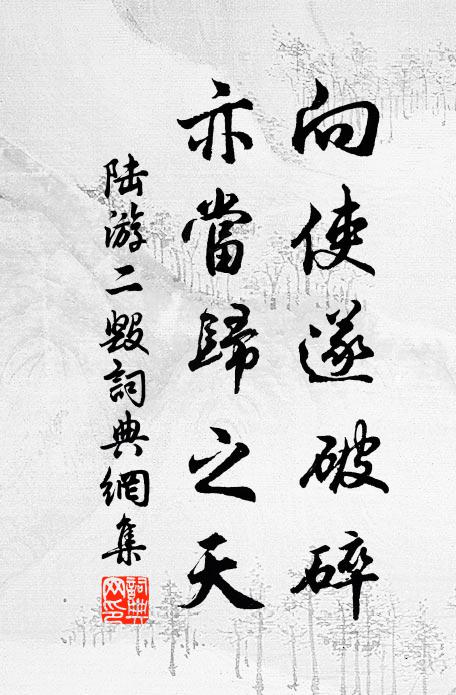 向使遂破碎
亦當歸之天
陆游二毁詞典網集
詞典
网印